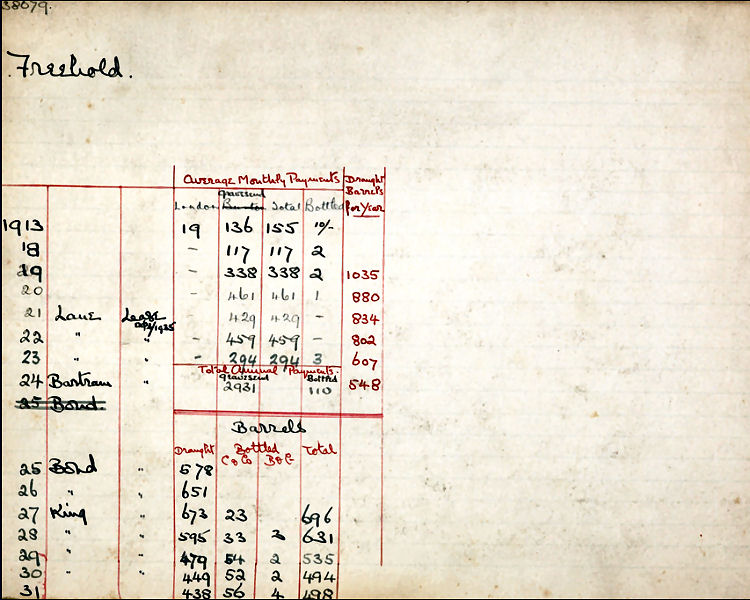 38079.
Freehold.
Average Monthly Payments Draught Barrels per Year
London Gravesend Burton Total Bottled
1913 19 136 155 10/-
18 - 117 117 2
19 - 338 338 2 1035
20 - 461 461 1 880
21 Lane Lease 1935 - 429 429 - 834
22 " " - 459 459 - 802
23 " " - 294 294 3 607
Total Annual Payments.
Gravesend Bottled
24 Bartram " 2931 110 548
25 Bond.
Barrels
Draught Bottled Total
C & Co B & G
25 Bond " 578
26 " " 651
27 King " 673 23 696
28 " " 595 33 3 631
29 " " 479 54 2 535
30 " " 449 52 2 494
31 438 56 4 498